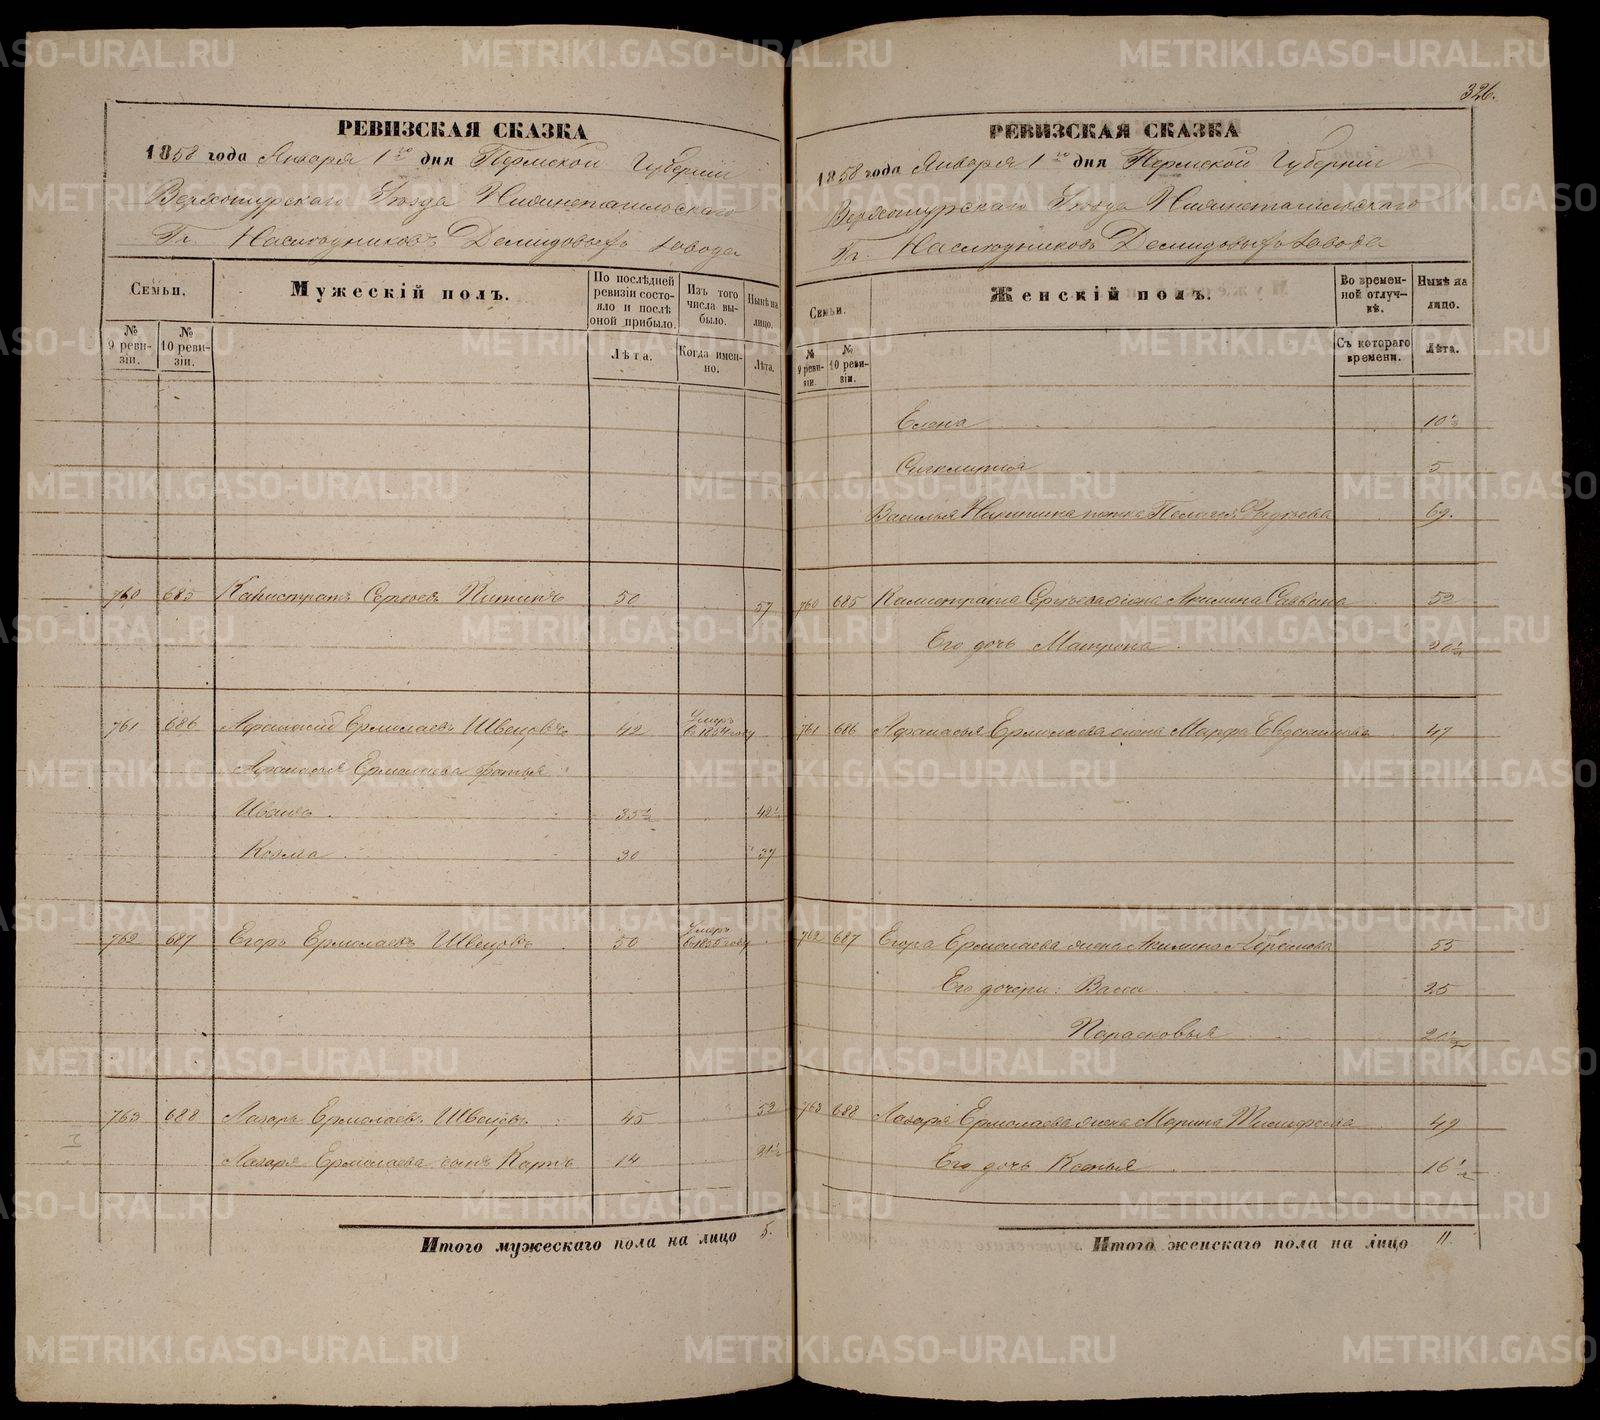 326.
РЕВИЗСКАЯ СКАЗКА
1858 года Января 1го дня Пермской Губернии
Верхотурскаго Уѣзда Нижнетагильскаго
Гг. Наслѣдниковъ Демидовыхъ завода
Семьи.
Мужескій полъ.
По послѣдней ревизіи состояло и послѣ оной прибыло.
Изъ того числа выбыло.
Нынѣ на лицо.
№ 9 ревизіи.
№ 10 ревизіи.
Лѣта.
Когда именно.
Лѣта.
760 685 Сергѣевъ 50 57
761 686 Афанасій Ермолаевъ Швецовъ 42 Умеръ
Афанасья Ермолаева братья
Иванъ 35½ 42½
Козма 30 37
762 687 Егоръ Ермолаевъ Швецовъ 50 Умеръ
763 688 Лазарь Ермолаевъ Швецовъ 45 52
Лазаря Ермолаева сынъ Карпъ 14 21½
Итого мужескаго пола на лицо 5.
РЕВИЗСКАЯ СКАЗКА
1858 года Января 1го дня Пермской Губерніи
Верхотурскаго Уѣзда Нижнетагильскаго
Гг. Наслѣдниковъ Демидовыхъ завода
Семьи.
Женскій полъ.
Во временной отлучкѣ.
Нынѣ на лицо.
№ 9 ревизіи.
№ 10 ревизіи.
Съ котораго времени.
Лѣта.
Елена 10½
Синклитія 5
Василья Никитина Пелагея 69.
760 685 Сергѣева жена Акилина Саввина 52
Его дочь Матрона 20½
761 686 Афанасья Ермолаева жена Марфа Евдокимова 47
762 687 Егора Ермолаева жена Акилина Абрамова 55
Его дочери: Васса 25
Парасковья 20½
763 688 Лазаря Ермолаева жена Марина Тимофеева 49
Его дочь Ксенья 16½
Итого женскаго пола на лицо 11
METRIKI.GASO-URAL.RU